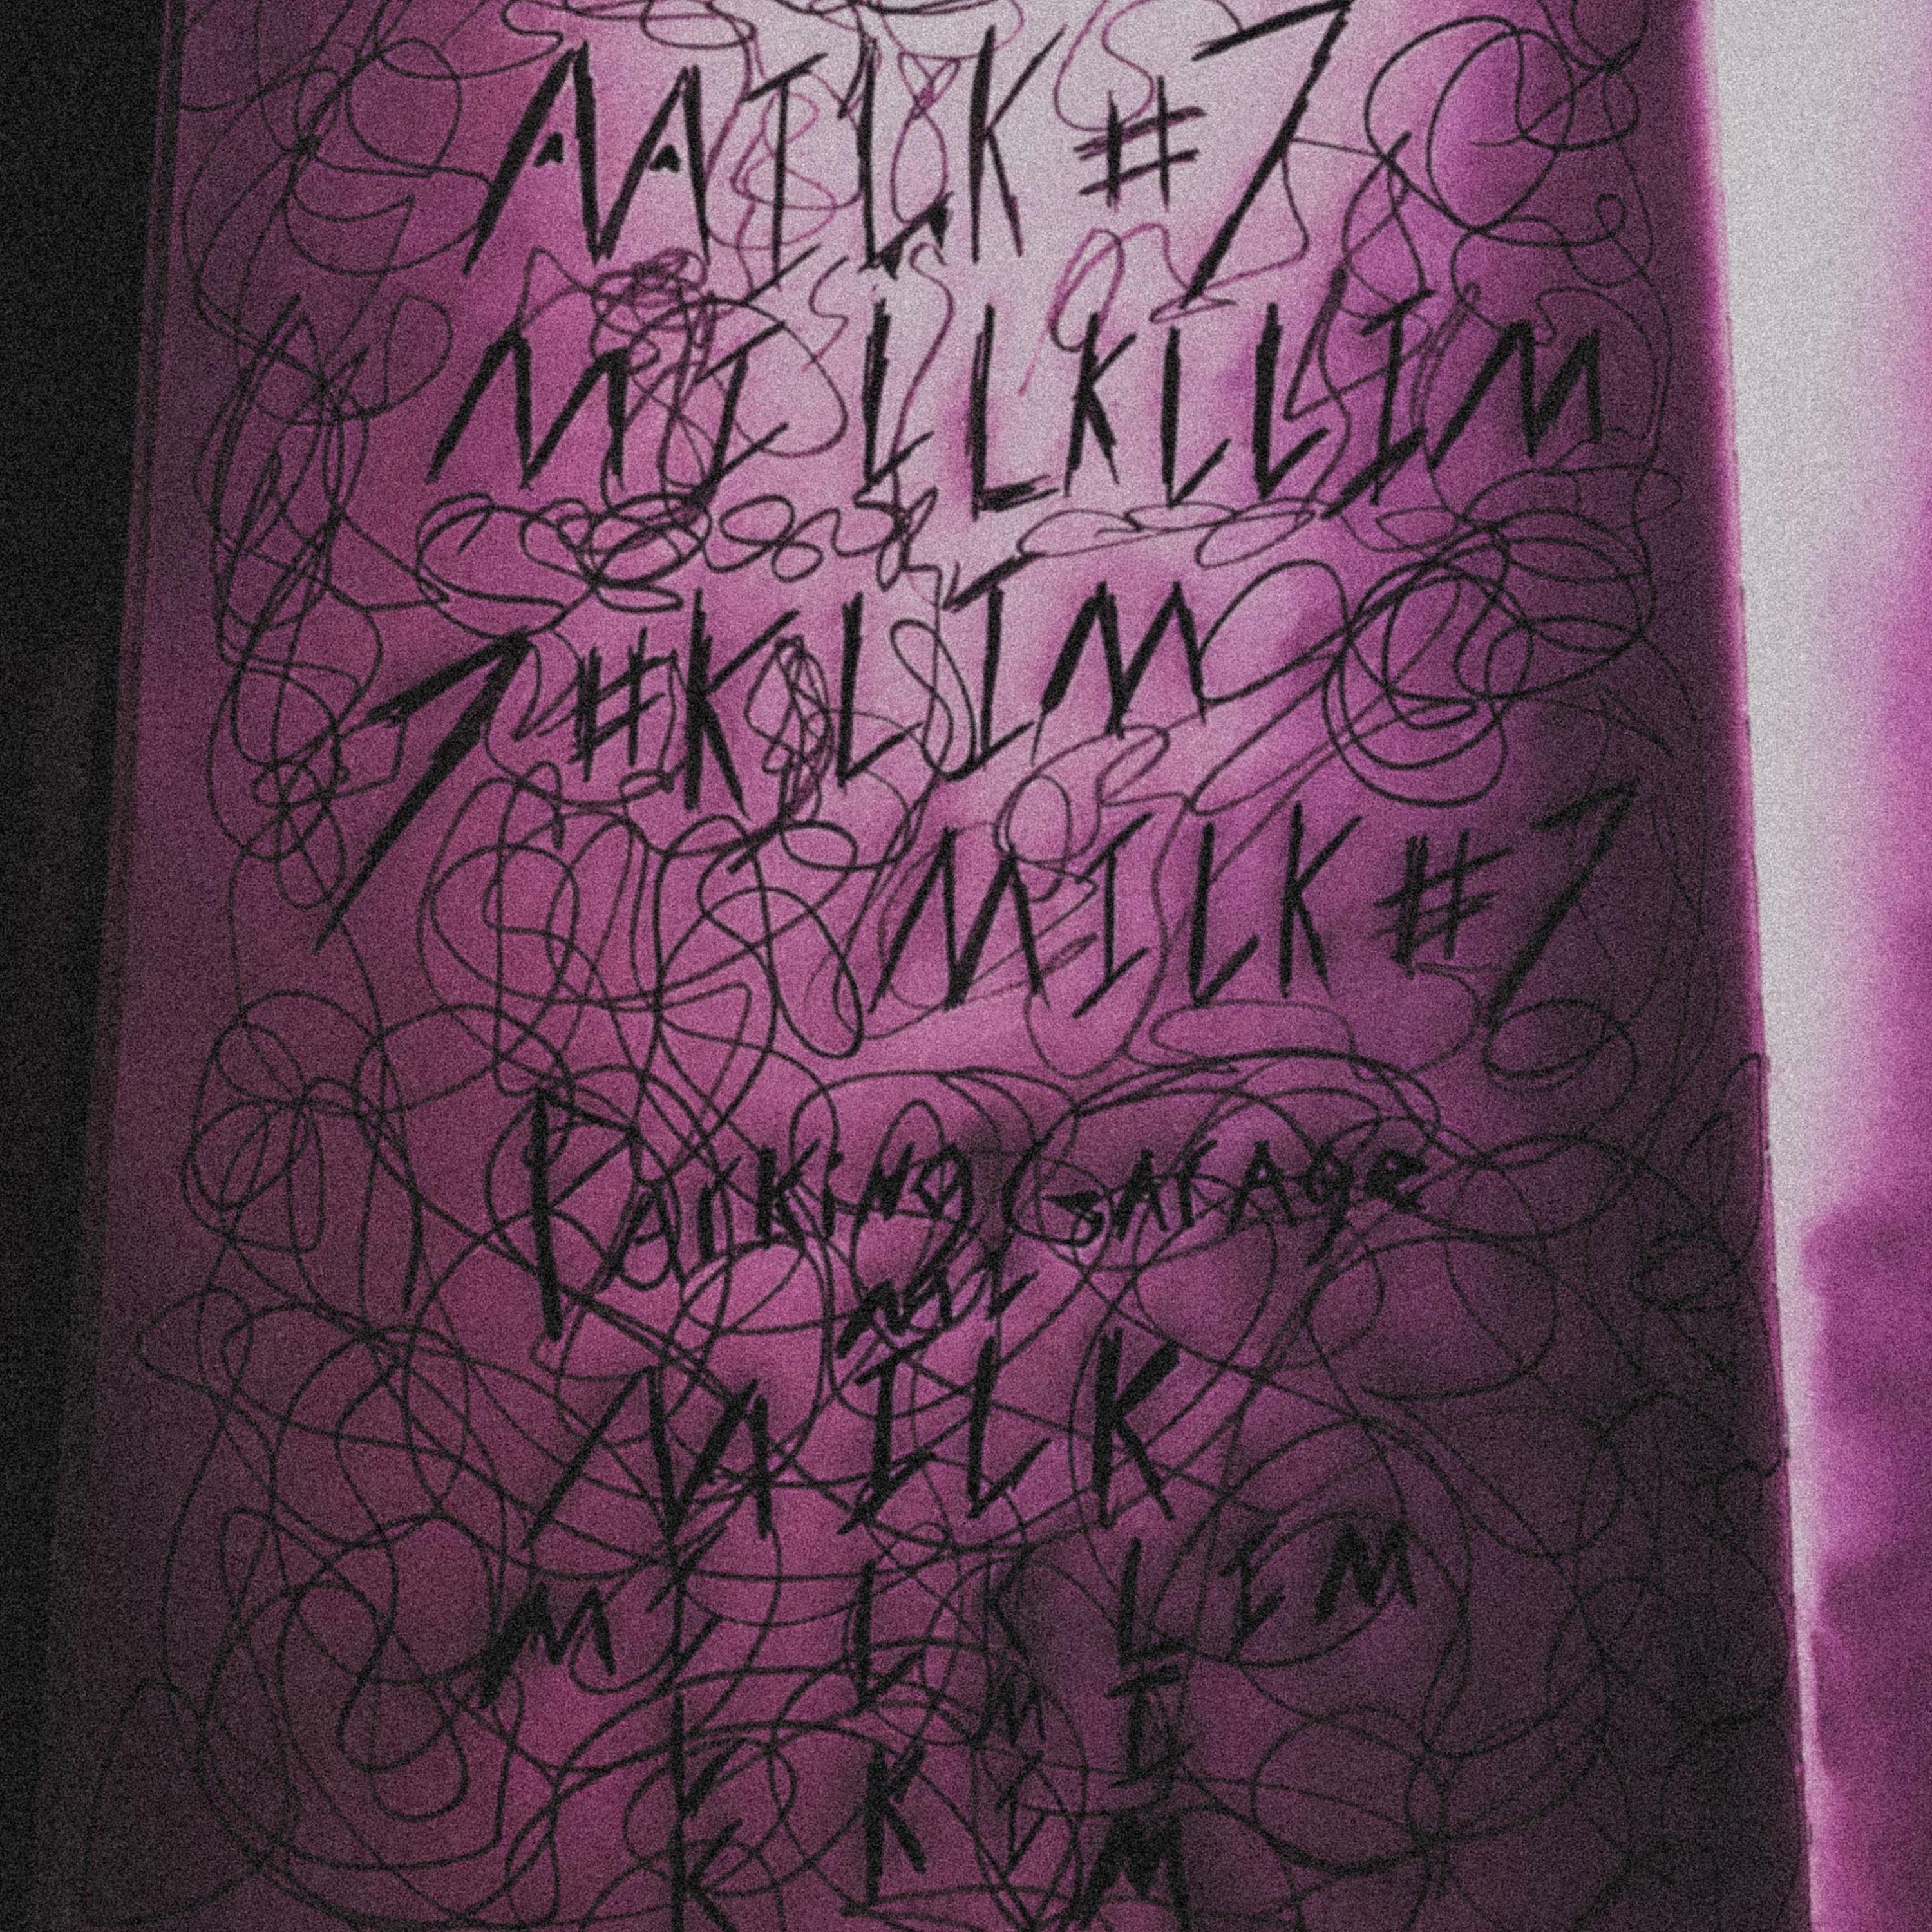 MILK #7
MILLKLLIM
7#KLIM
MILK #7
PARKiNg GARAgE
MI
MILK
MILKLIM
K K I M